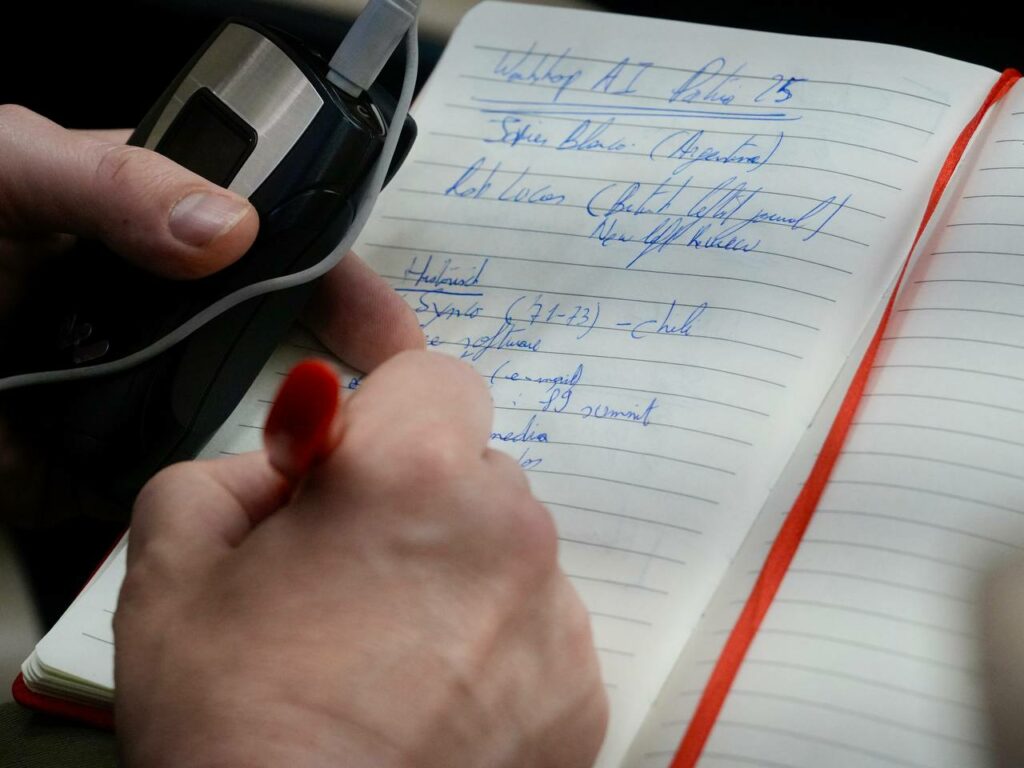 Workshop AI Patio 25
Javier Blanco. (Argentina)
Rob Lucas (British leftist journal)
New left Review
Historisch
Synco (71-73) - chile
software
(e-mail)
: 89 summit
media